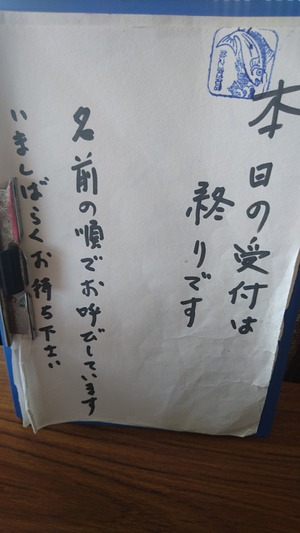 本日の受付は
終りです
名前の順でお呼びしています
いましばらくお待ち下さい